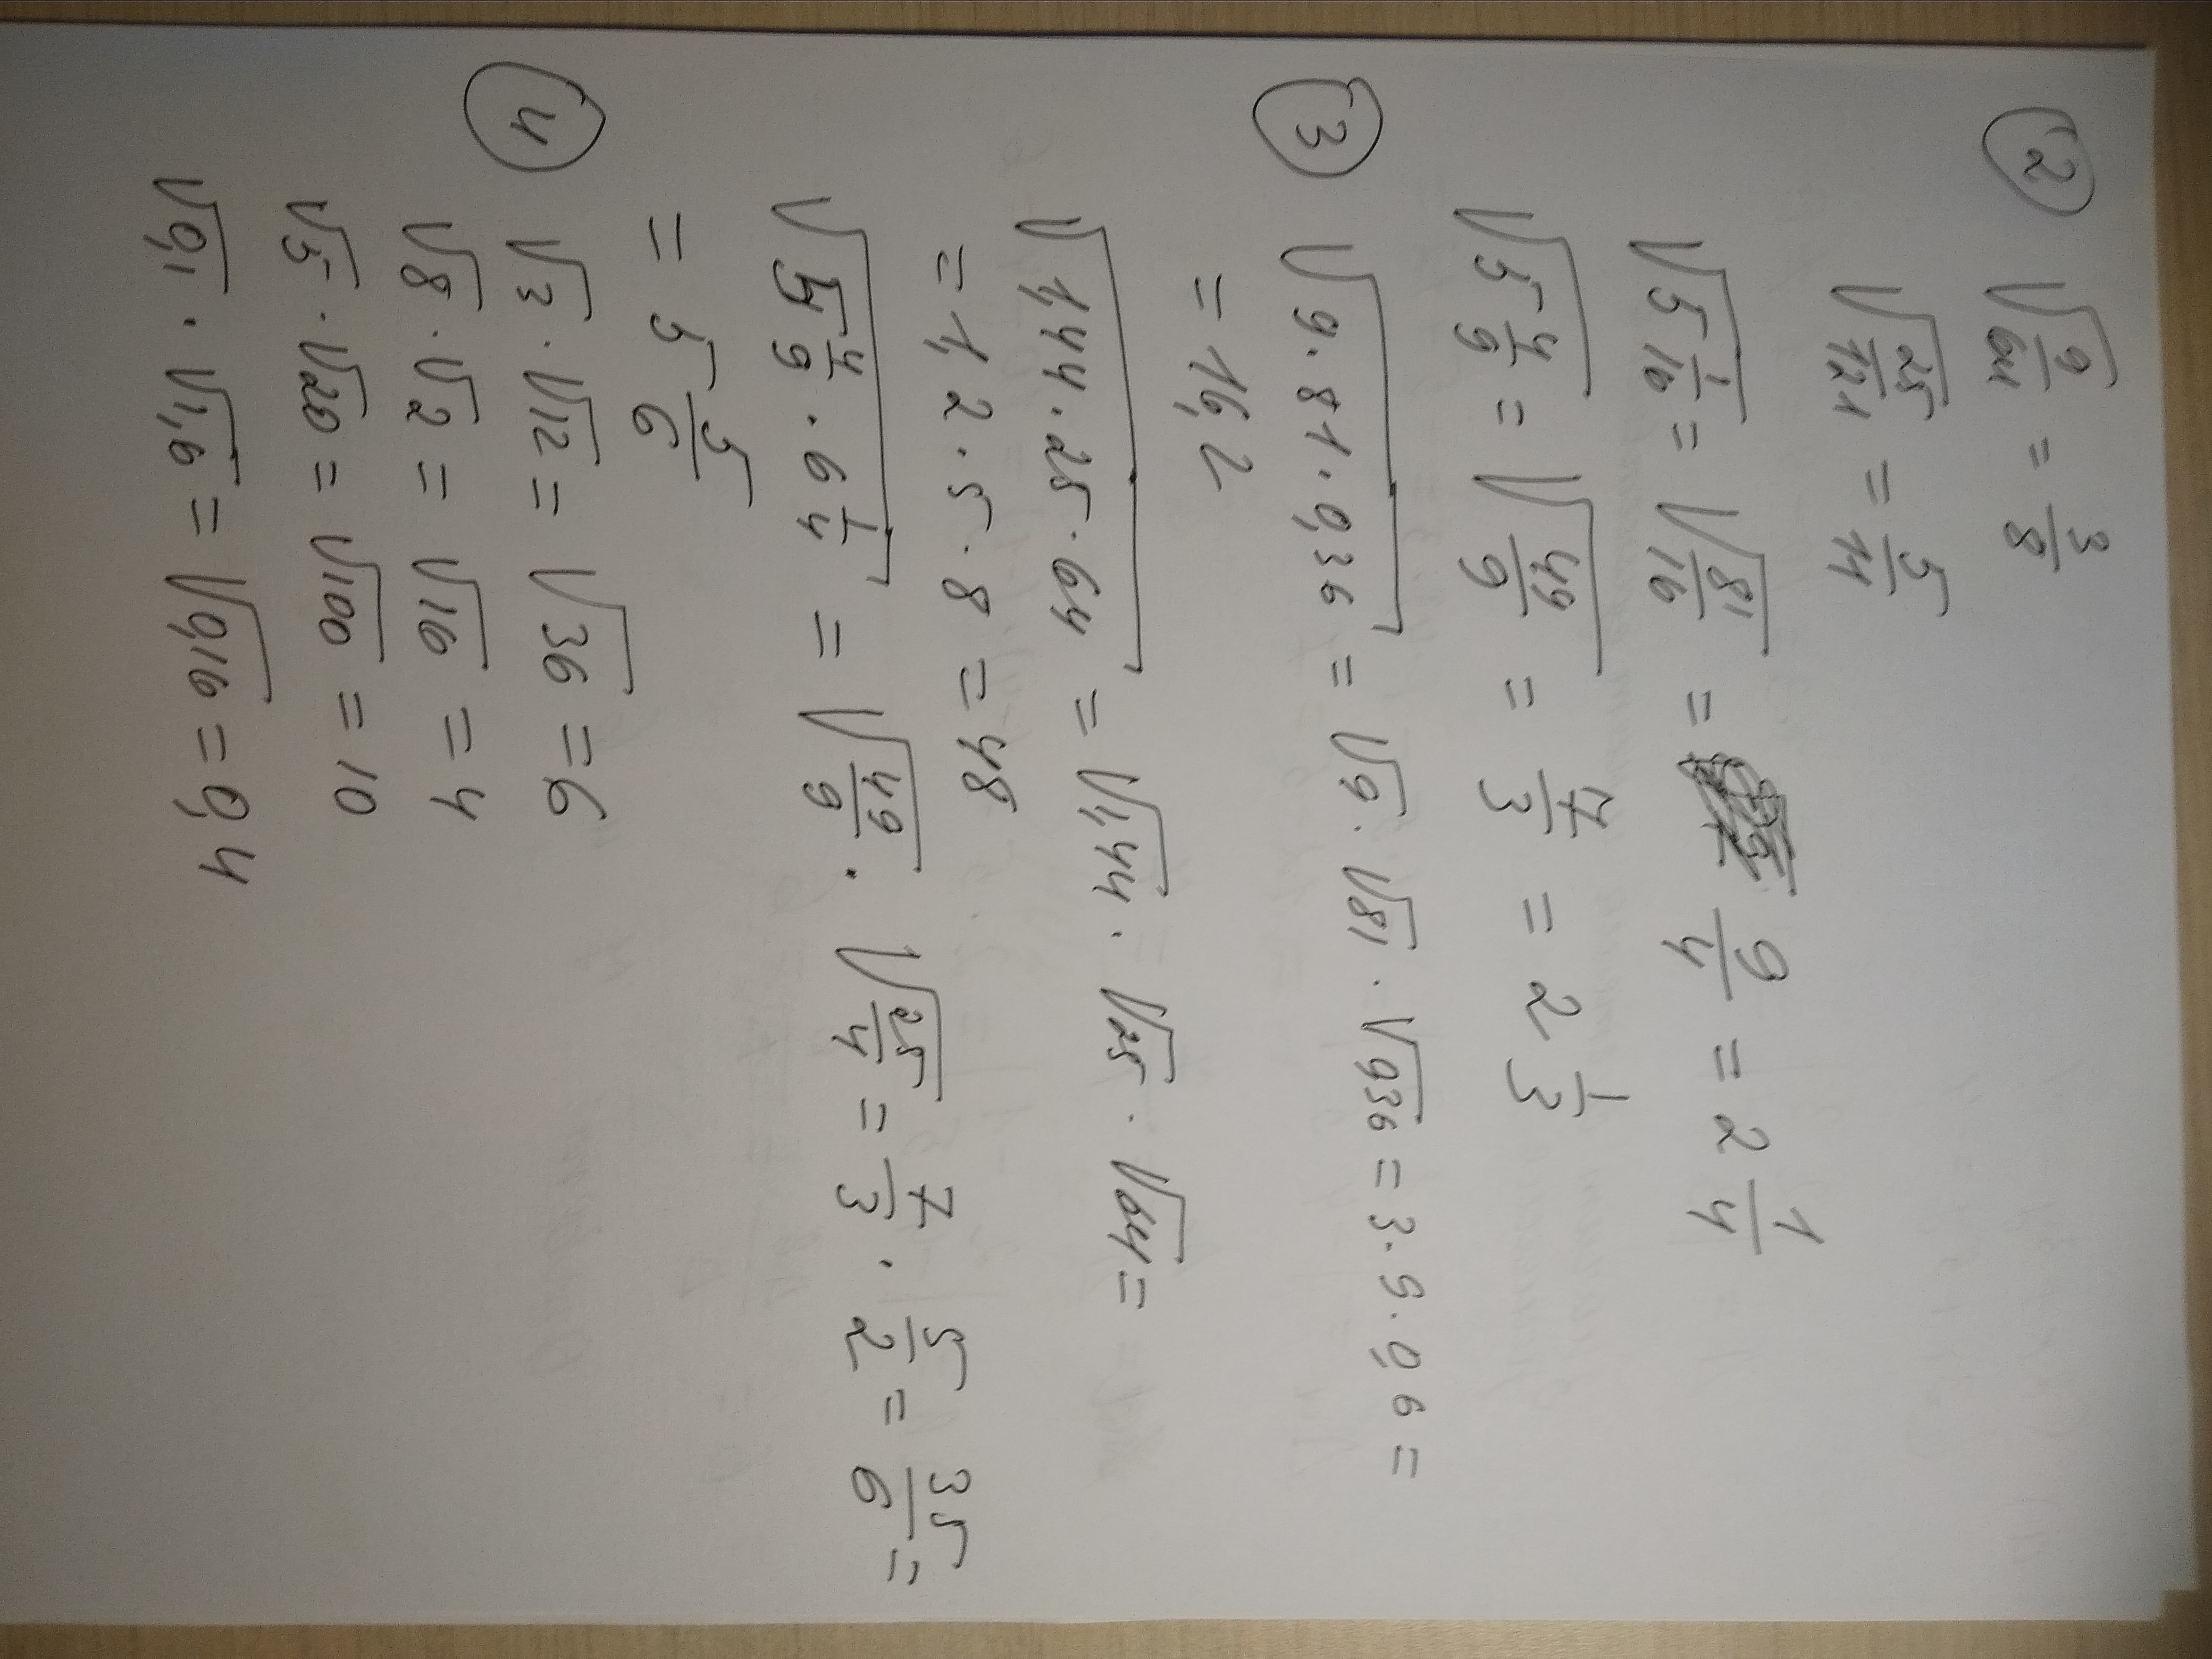 ② √(9/64) = 3/8
√(25/121) = 5/11
√(5 1/16) = √(81/16) = 9/4 = 2 1/4
√(5 4/9) = √(49/9) = 7/3 = 2 1/3
③ √(9·81·0,36) = √9 · √81 · √0,36 = 3·9·0,6 =
= 16,2
√(1,44·25·64) = √1,44 · √25 · √64 =
= 1,2·5·8 = 48
√(5 4/9 · 6 1/4) = √(49/9) · √(25/4) = 7/3 · 5/2 = 35/6 =
= 5 5/6
④ √3 · √12 = √36 = 6
√8 · √2 = √16 = 4
√5 · √20 = √100 = 10
√0,1 · √1,6 = √0,16 = 0,4